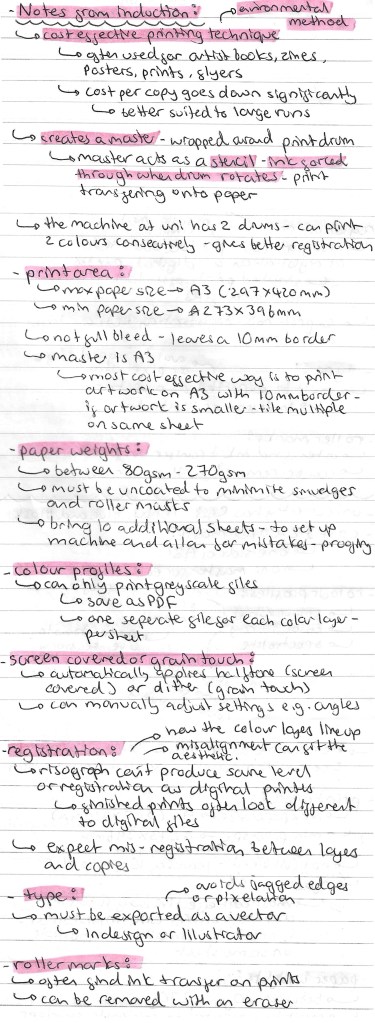 - Notes from induction: ↱ environmental method
↳ cost effective printing technique
↳ often used for artist books, zines,
posters, prints, flyers
↳ cost per copy goes down significantly
↳ better suited to large runs
↳ creates a master - wrapped around print drum
↳ master acts as a stencil - ink forced
through when drum rotates - print
transfering onto paper
↳ the machine at uni has 2 drums - can print
2 colours consecutively - gives better registration
- print area:
↳ max paper size → A3 (297x420mm)
↳ min paper size → A273x396mm
↳ not full bleed - leaves a 10mm border
↳ master is A3
↳ most cost effective way is to print
artwork on A3 with 10mm border -
if artwork is smaller - tile multiple
on same sheet
- paper weights:
↳ between 80gsm - 270gsm
↳ must be uncoated to minimise smudges
and roller masks
↳ bring 10 additional sheets - to set up
machine and allow for mistakes - proofing
- colour profiles:
↳ can only print greyscale files
↳ save as PDF
↳ one seperate files for each color layer -
per sheet
- screen covered or grain touch:
↳ automatically applies halftone (screen
covered) or dither (grain touch)
↳ can manually adjust settings e.g. angles
↱ how the colour layes line up
- registration: → misalignment can fit the
aesthetic.
↳ risograph can't produce same level
or registration as digital printes
↳ finished prints often look different
to digital files
↳ expect mis-registration between layes
and copies
↱ avoids jagged edges
- type: or pixelation
↳ must be exported as a vector
↳ Indesign or Illustrator
- roller marks:
↳ often find ink transfer on prints
↳ can be removed with an eraser